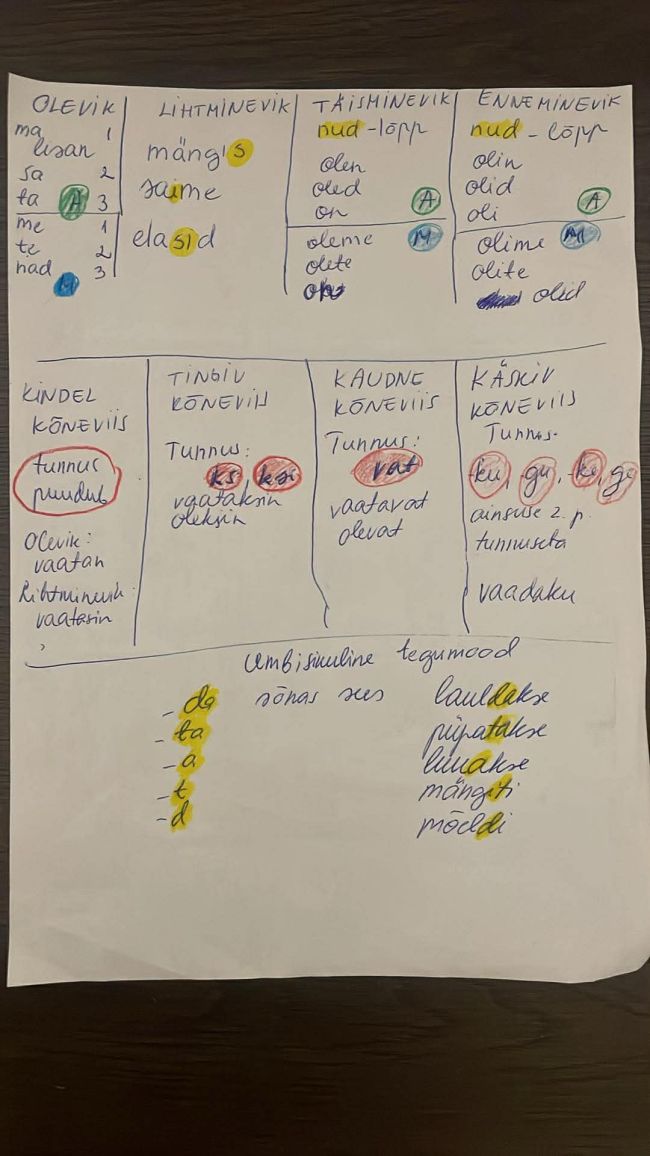 OLEVIK
ma 1
lisan
sa 2
ta A 3
me 1
te 2
nad 3
M
LIHTMINEVIK
mängis
saime
elasid
TÄISMINEVIK
nud - lõpp
olen
oled
on A
oleme M
olete
on
ENNEMINEVIK
nud - lõpp
olin
olid
oli A
olime M
olite
olid
KINDEL
KÕNEVIIS
tunnus
puudub
Olevik:
vaatan
Lihtminevik:
vaatasin
TINGIV
KÕNEVIIS
Tunnus:
ks, ksi
vaataksin
oleksin
KAUDNE
KÕNEVIIS
Tunnus:
vat
vaatavat
olevat
KÄSKIV
KÕNEVIIS
Tunnus-
-ku, -gu, -ke, ge
ainsuse 2. p.
tunnuseta
vaadaku
Umbisikuline tegumood
- da sõnas sees lauldakse
- ta püpatakse
- a luuakse
- t mängiti
- d mõeldi